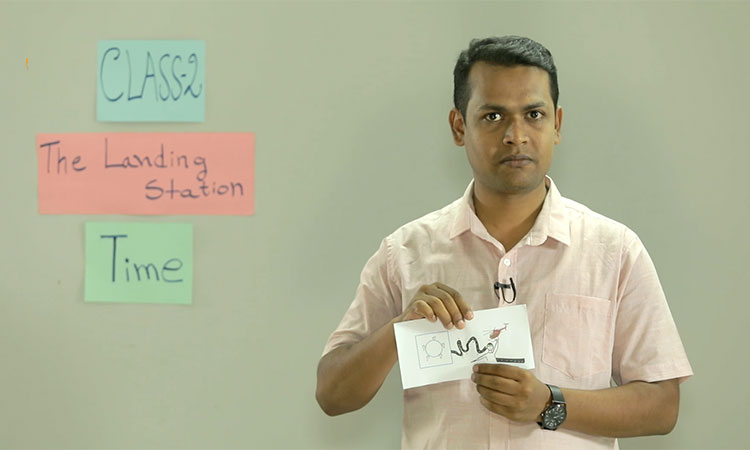 CLASS-2
The Landing
Station
Time